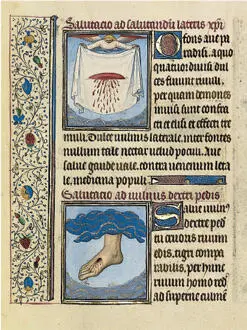 Salutacio ad salutandū lateris xpī
O fons aue pa
radisi. a quo
quatuor diuisi
ces fuere riuuli
per quam demones
inuisi sunt confra
cti et elisi et effecti tre
muli. Dulce uulnus laterale. inter fontes
nullum tale nectar uel ud pocū. Aue
salue gaude uale. contra uenenum leta
le, mediana populi
Salutacio ad uulnus dextri pedis
Salue uuln'
dextre pe
cruoris riuum
edis. tigri compa
rabilis, per hunc
riuum homo red
ad superne culmē